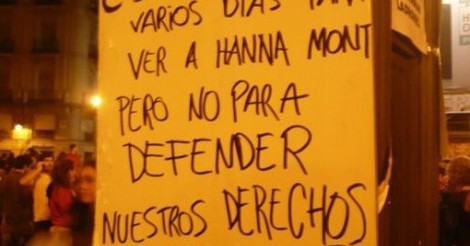 VARIOS DIAS PARA
VER A HANNA MONT
PERO NO PARA
DEFENDER
NUESTROS DERECHOS